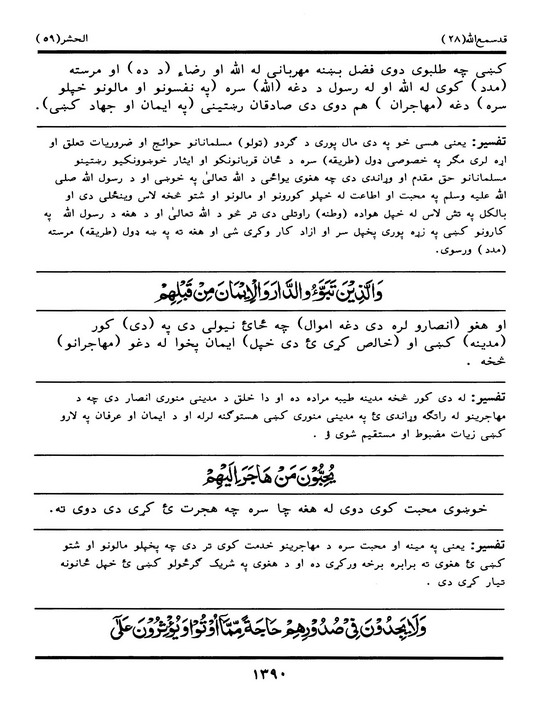 قدسمع الله (٢٨) الحشر (٥٩)
کښې چه طلبوی دوی فضل بښنه مهربانی له الله او رضاء (د ده) او مرسته
(مدد) کوی له الله او له رسول د دغه (الله) سره (په نفسونو او مالونو خپلو
سره) دغه (مهاجران) هم دوی دی صادقان رښتینی (په ایمان او جهاد کښې).
تفسیر: یعنی هسی خو په دی مال پوری د ګردو (ټولو) مسلمانانو حوائج او ضروریات تعلق او
اړه لری مګر په خصوصی ډول (طریقه) سره د ځان قربانونکو او ایثار خوښوونکیو رښتینو
مسلمانانو حق مقدم او وړاندی دی چه هغوی یواځی د الله تعالیٰ په خوښی او د رسول الله صلی
الله علیه وسلم په محبت او اطاعت له خپلو کورونو او مالونو او شتو څخه لاس وینځلی دی او
بالکل په تش لاس له خپل هواده (وطنه) راوتلی دی تر څو د الله تعالیٰ او د هغه د رسول الله په
کارونو کښې په زړه پوری پخپل سر او ازاد کار وکړی شی او هغه ته په ښه ډول (طریقه) مرسته
(مدد) ورسوی.
وَالَّذِيْنَ تَبَوَّءُ والدَّارَ وَالْاِيْمَانَ مِنْ قَبْلِهِمْ
او هغو (انصارو لره دی دغه اموال) چه ځائ نیولی دی په (دی) کور
(مدینه) کښې او (خالص کړی ئ دی خپل) ایمان پخوا له دغو (مهاجرانو)
څخه .
تفسیر: له دی کور څخه مدینه طیبه مراده ده او دا خلق د مدینی منوری انصار دی چه د
مهاجرینو له راتګه وړاندی ئ په مدینی منوری کښې هستوګنه لرله او د ایمان او عرفان په لارو
کښې زیات مضبوط او مستقیم شوی ؤ .
يُحِبُّوْنَ مَنْ هَاجَرَ اِلَيْهِمْ
خوښوی محبت کوی دوی له هغه چا سره چه هجرت ئ کړی دی دوی ته.
تفسیر: یعنی په مینه او محبت سره د مهاجرینو خدمت کوی تر دی چه پخپلو مالونو او شتو
کښې ئ هغوی ته برابره برخه ورکړی ده او د هغوی په شریک ګرځولو کښې ئ خپل ځانونه
تیار کړی دی .
وَلَا يَجِدُوْنَ فِيْ صُدُوْرِهِمْ حَاجَةً مِّمَّآ اُوْتُوْا وَيُؤْثِرُوْنَ عَلٰٓى
١٣٩٠